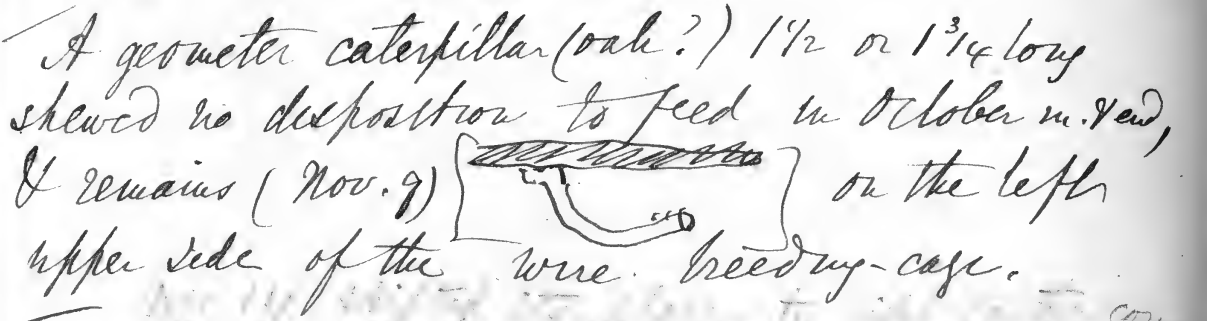 A geometer caterpillar (oak?) 1 1/2 or 1 3/4 long
shewed no disposition to feed in October m. & end,
& remains (Nov. 9) on the left
upper side of the wire breeding-cage.